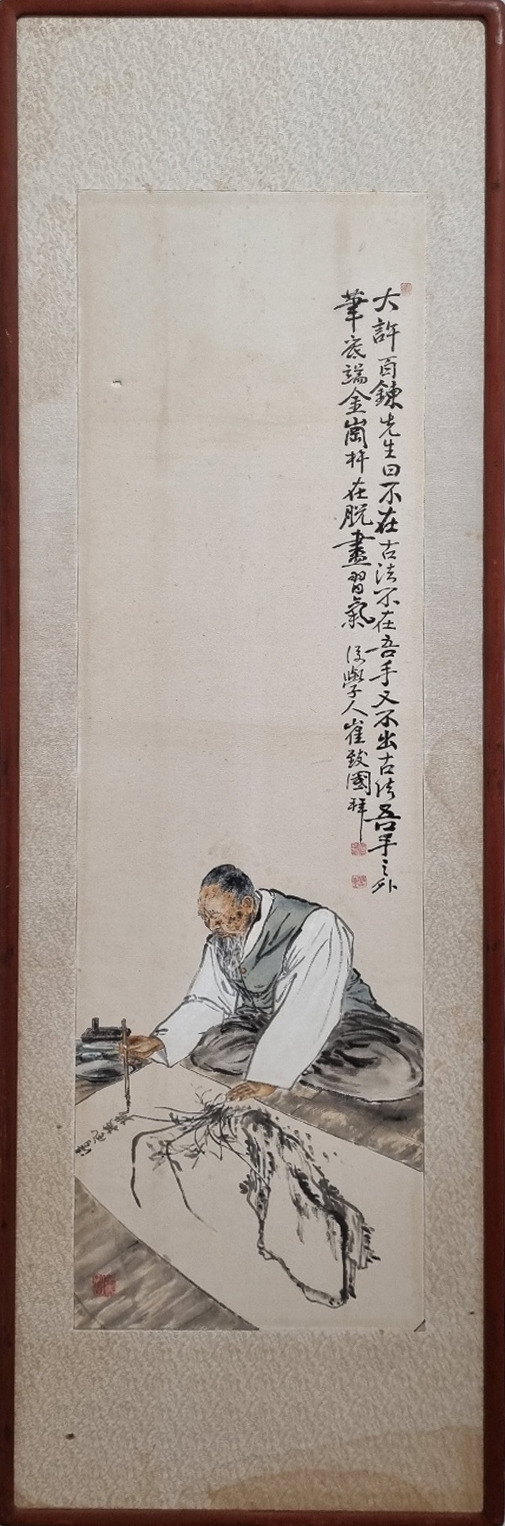 大許百鍊先生曰不在古法不在吾手又不出古法吾手之外
筆底端金崗杵在脫盡習氣 後學人崔致國拜